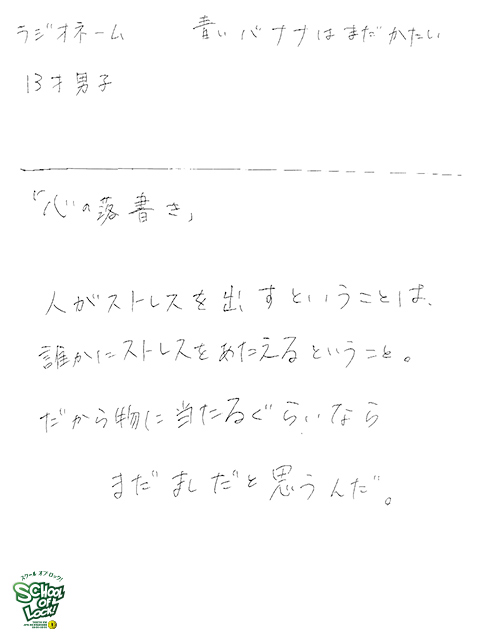 ラジオネーム　青いバナナはまだかたい
13才男子
「心の落書き」
人がストレスを出すということは、
誰かにストレスをあたえるということ。
だから物に当たるぐらいなら
まだましだと思うんだ。
スクールオブロック!
SCHOOL OF LOCK!